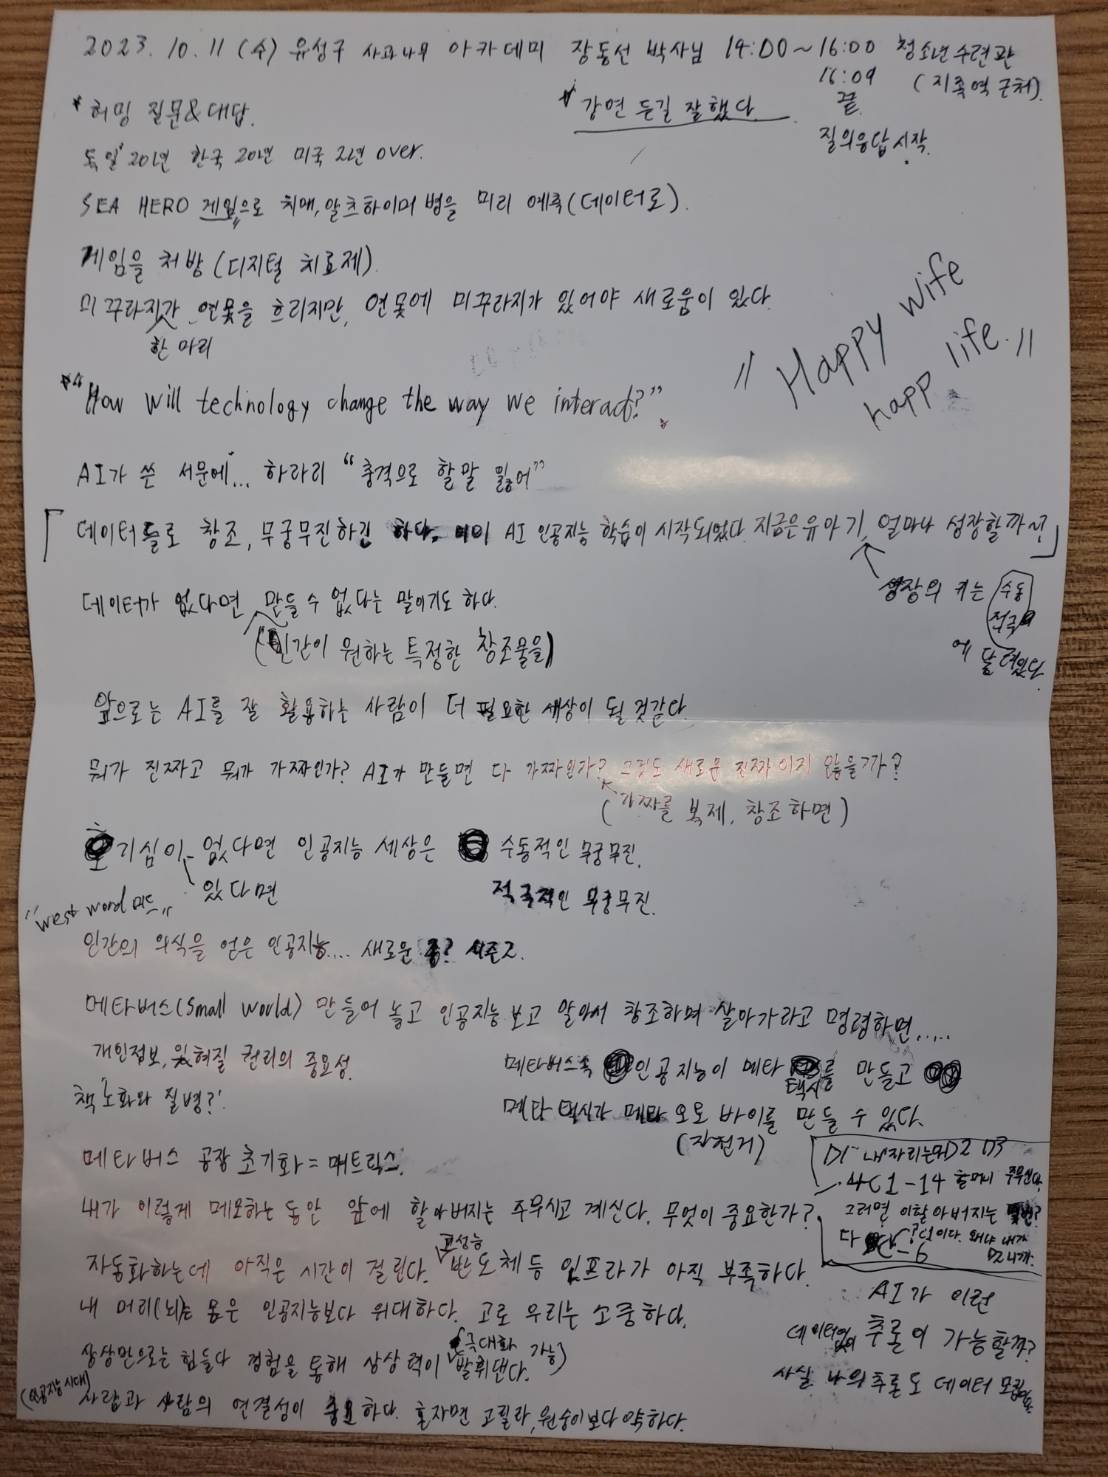 2023. 10. 11 (수) 유성구 사과나무 아카데미 장동선 박사님 14:00~16:00 청소년수련관
16:09 (지족역 근처)
끝
질의응답 시작.
* 허밍 질문&대답.
* 강연 듣길 잘했다.
독일 20년 한국 20년 미국 2년 over.
SEA HERO 게임으로 치매, 알츠하이머 병을 미리 예측(데이터로).
게임을 처방 (디지털 치료제)
미꾸라지가 연못을 흐리지만, 연못에 미꾸라지가 있어야 새로움이 있다.
한 마리
"Happy wife
happ life."
"How will technology change the way we interact?"
AI가 쓴 서문에... 하라리 "충격으로 할말 잃어"
「데이터들로 창조, 무궁무진하긴 하다. 이미 AI 인공지능 학습이 시작되었다. 지금은 유아기, 얼마나 성장할까~?」
성장의 키는 수동
적극
에 달려있다.
데이터가 없다면 만들 수 없다는 말이기도 하다.
(인간이 원하는 특정한 창조물을)
앞으로는 AI를 잘 활용하는 사람이 더 필요한 세상이 될 것같다.
뭐가 진짜고 뭐가 가짜인가? AI가 만들면 다 가짜인가? 그것도 새로운 진짜이지 않을까?
(가짜를 복제, 창조하면)
호기심이 없다면 인공지능 세상은 수동적인 무궁무진.
있다면 적극적인 무궁무진.
"west word 미드"
인간의 의식을 얻은 인공지능.... 새로운 종?
메타버스(Small world) 만들어 놓고 인공지능 보고 알아서 창조하며 살아가라고 명령하면.....
개인정보, 잊혀질 권리의 중요성.
메타버스속 인공지능이 메타 택시를 만들고
책 '노화와 질병?'
메타 택시가 메타 오토바이를 만들 수 있다.
(자전거)
메타버스 공장 초기화 = 매트릭스.
D1 내자리는 D2 D3
4C 1-14 할머니 주무신다.
내가 이렇게 메모하는 동안 앞에 할아버지는 주무시고 계신다. 무엇이 중요한가?
그러면 이할아버지는 몇번?
자동화하는데 아직은 시간이 걸린다. 고성능 반도체등 인프라가 아직 부족하다.
내 머리(뇌)는 몸은 인공지능보다 위대하다. 고로 우리는 소중하다.
AI가 이런
데이터없이 추론이 가능할까?
사실 나의 추론도 데이터
상상만으로는 힘들다 경험을 통해 상상력이 발휘된다.
(극대화 가능)
(인공지능시대)
사람과 사람의 연결성이 중요하다. 혼자면 고릴라, 원숭이보다 약하다.